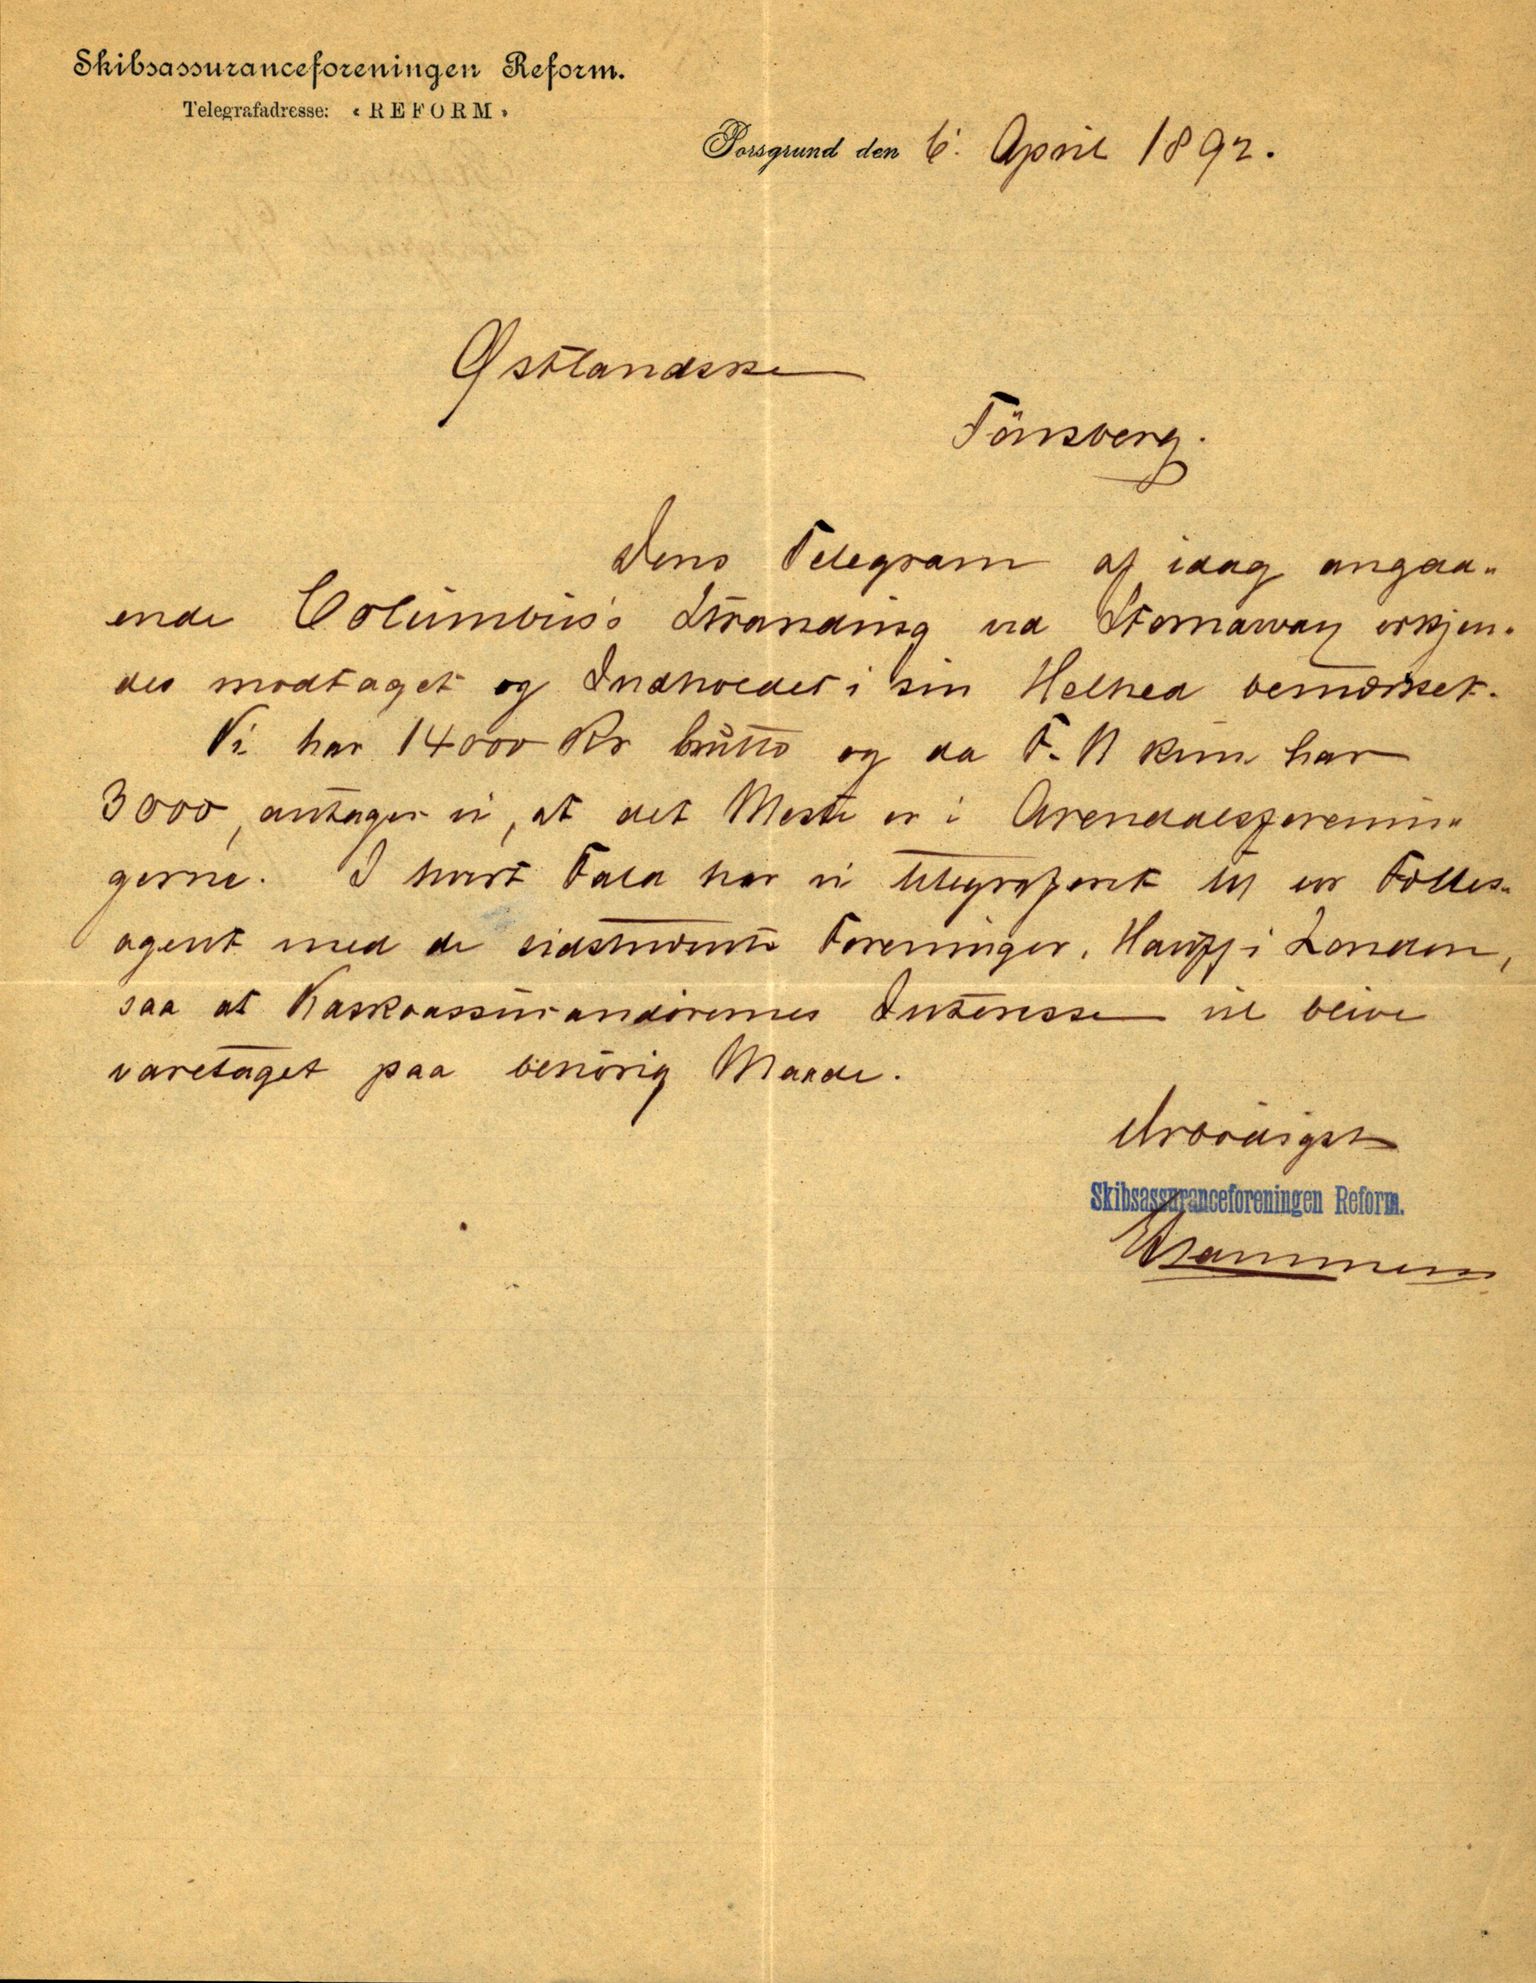 Skibsassuranceforeningen Reform.
Telegrafadresse: «REFORM»
Porsgrund den 6. April 1892.
Østlandske
Tönsberg.
Dens Telegram af idag angaa-
ende Columbus's Stranding ved Stornaway erkjen-
des modtaget og Indholdet i sin Helhed bemærket.
Vi har 14000 Kr brutto og da F. N kun har
3000, antager vi, at det Meste er i Arendalsforenin-
gerne. I hvert Fald har vi telegraferet til vor Fælles-
agent med de sidstnævnte Foreninger, Hauff i London,
saa at Kaskoassurandörernes Interesse vil blive
varetaget paa behörig Maade.
Ærbödigst
Skibsassuranceforeningen Reform.